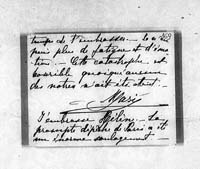 temps de l'embrasser. Il a
peu plus de fatigue et d'émo
tion. Cette catastrophe est
horrible quoique aucun
des notres n'ait été atteint.
Mary
J'embrasse Hélène. Le
prompt départ de Paris a été
un énorme soulagement.